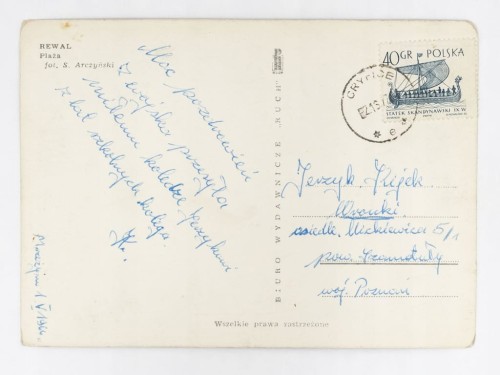 REWAL
Plaża
fot. S. Arczyński
Moc pozdrowień
z wojska przesyła
miłemu koledze Jerzykowi
z lat szkolnych kolega
K.
1 V 1964
BIURO WYDAWNICZE „RUCH"
40 GR POLSKA
STATEK SKANDYNAWSKI IX W.
GRYFICE
Jerzyk
Wronki
osiedle Mickiewicza 5/1
pow. Szamotuły
woj. Poznań
Wszelkie prawa zastrzeżone